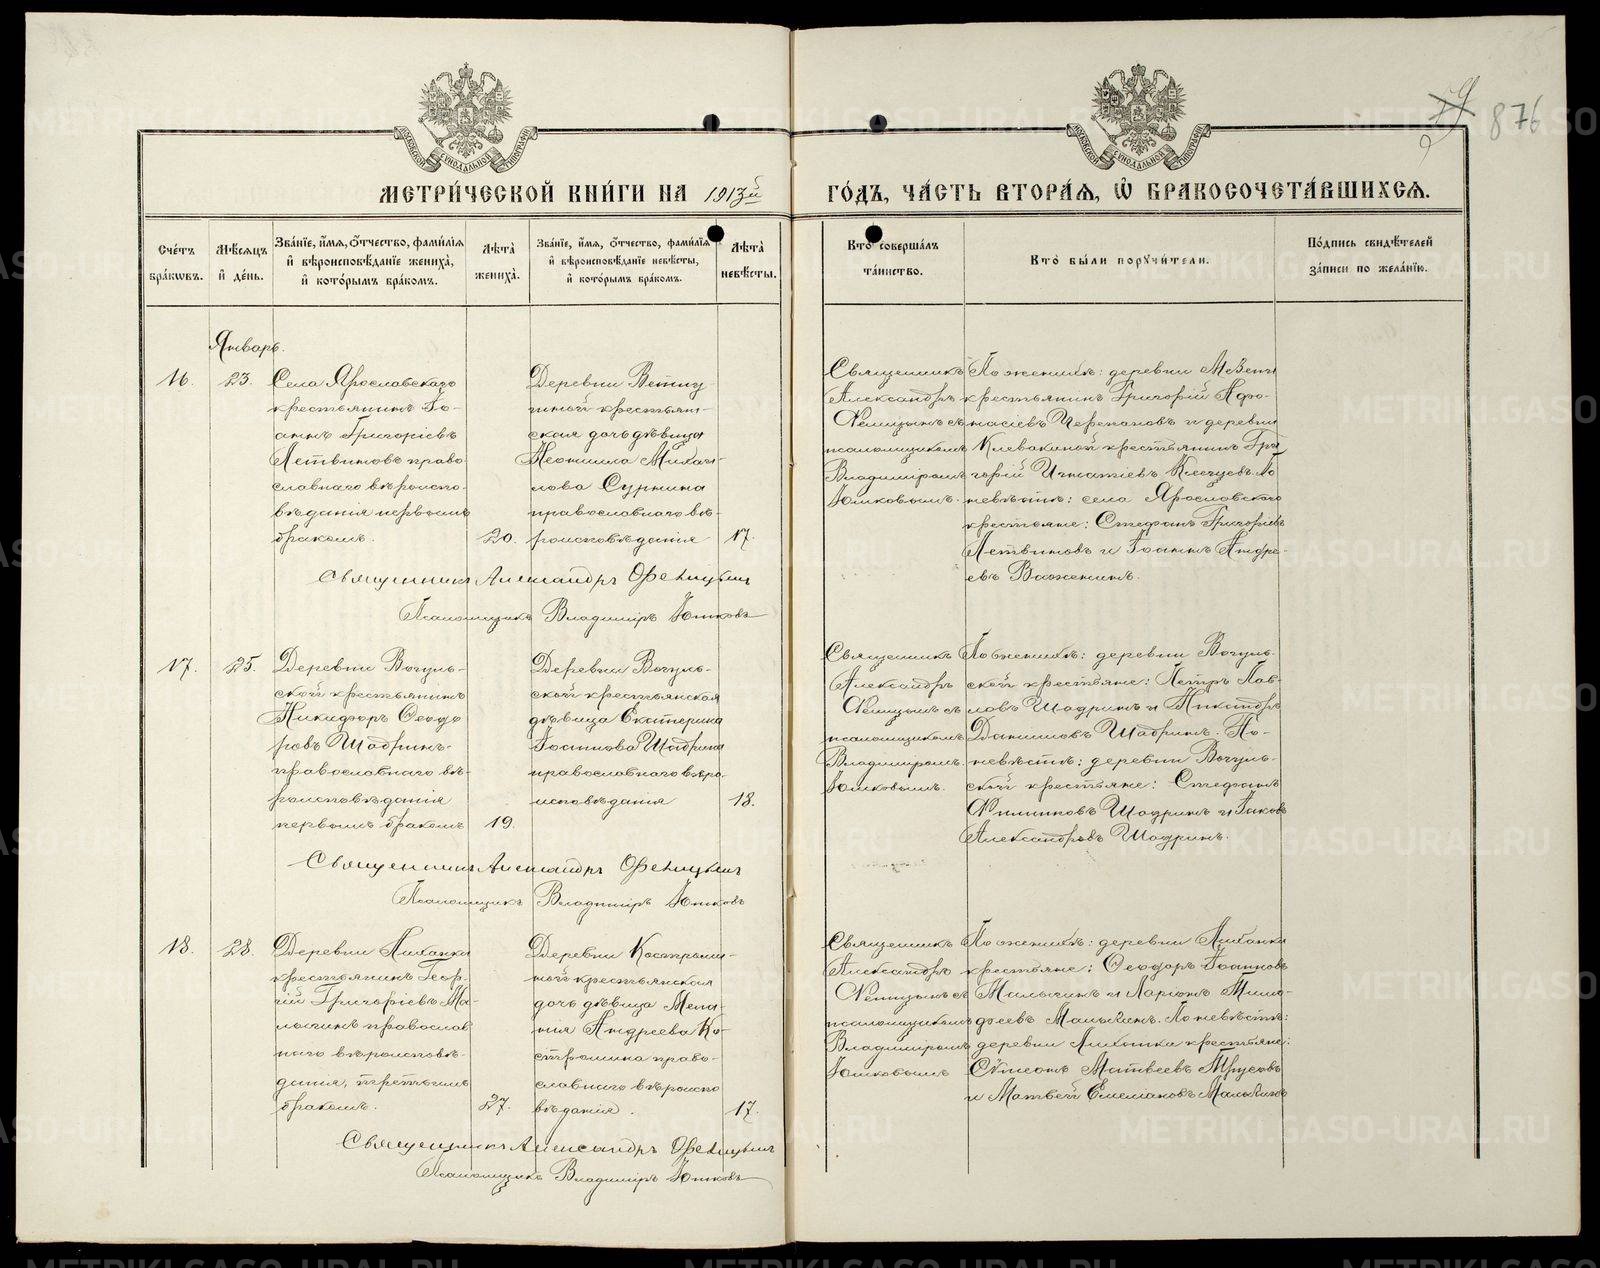 876
МОСКОВСКОЙ СѴНОДАЛЬНОЙ ТИПОГРАФІИ
МОСКОВСКОЙ СѴНОДАЛЬНОЙ ТИПОГРАФІИ
МЕТРИ́ЧЕСКОЙ КНИ́ГИ НА 1913й ГО́ДЪ, ЧА́СТЬ ВТОРА́Я, Ѡ҆ БРАКОСОЧЕТА́ВШИХСЯ.
Сче́тъ бра́кѡвъ.
Мѣ́сяцъ и҆ де́нь.
Зва́нїе, и҆́мя, ѻ҆́тчество, фами́лїя и҆ вѣроисповѣ́данїе жениха̀, и҆ кото́рымъ бра́комъ.
Лѣ́та̀ жениха̀.
Зва́нїе, и҆́мя, ѻ҆́тчество, фами́лїя и҆ вѣроисповѣ́данїе невѣ́сты, и҆ кото́рымъ бра́комъ.
Лѣ́та̀ невѣ́сты.
Кто̀ соверша́лъ та́инство.
Кто̀ бы́ли порꙋчи́тели.
По́дпись свидѣ́телей за́писи по жела́нїю.
Январь.
16.
23.
Села Ярославскаго
крестьянинъ Іо-
аннъ Григоріевъ
Летвиновъ право-
славнаго вѣроиспо-
вѣданія первымъ
бракомъ.
20.
ской крестьян-
ская дочь дѣвица
Неонила Михаи-
лова Сурнина
православнаго вѣ-
роисповѣданія
17.
Священникъ
Александръ
съ
псаломщикомъ
Владиміромъ
Юшковымъ.
По женихѣ: деревни
крестьянинъ Григорій Афо-
насіевъ Черепановъ и деревни
Клевакиной крестьянинъ Гри
горій Игнатіевъ По
невѣстѣ: села Ярославскаго
крестьяне: Стефанъ Григоріевъ
Летвиновъ и Іоаннъ Андре-
евъ Важенинъ.
Священникъ Александръ
Псаломщикъ Владиміръ Юшковъ
17.
25.
Деревни Вогуль-
ской крестьянинъ
Никифоръ Ѳеодо
ровъ Шадринъ
православнаго вѣ-
роисповѣданія
первымъ бракомъ
19.
Деревни Вогуль-
ской крестьянская
дѣвица Екатерина
Іоаннова Шадрина
православнаго вѣро
исповѣданія
18.
Священникъ
Александръ
съ
псаломщикомъ
Владиміромъ
Юшковымъ.
По женихѣ: деревни Вогуль-
ской крестьяне: Петръ Пав-
ловъ Шадринъ и Никандръ
Даниловъ Шадринъ. По-
невѣстѣ: деревни Вогуль-
ской крестьяне: Стефанъ
Филипповъ Шадринъ и Іаковъ
Александровъ Шадринъ.
Священникъ Александръ
Псаломщикъ Владиміръ Юшковъ
18.
28.
Деревни Липанки
крестьянинъ Геор-
гій Григоріевъ Ма-
лыгинъ православ
наго вѣроисповѣ-
данія, третьимъ
бракомъ.
27.
Деревни Костроми-
ной крестьянская
дочь дѣвица Мела-
нія Андреева Ко-
стромина право-
славнаго вѣроиспо
вѣданія.
17.
Священникъ
Александръ
съ
псаломщикомъ
Владиміромъ
Юшковымъ
По женихѣ: деревни Липанки
крестьяне: Ѳеодоръ Іоанновъ
Малыгинъ и Ларіонъ Тимо-
ѳеевъ Малыгинъ. По невѣстѣ:
деревни Липанки крестьяне:
Сѵмеонъ Матвеевъ Трусовъ
и Матвей Емельяновъ Малыгинъ
Священникъ Александръ
Псаломщикъ Владиміръ Юшковъ
METRIKI.GASO-URAL.RU